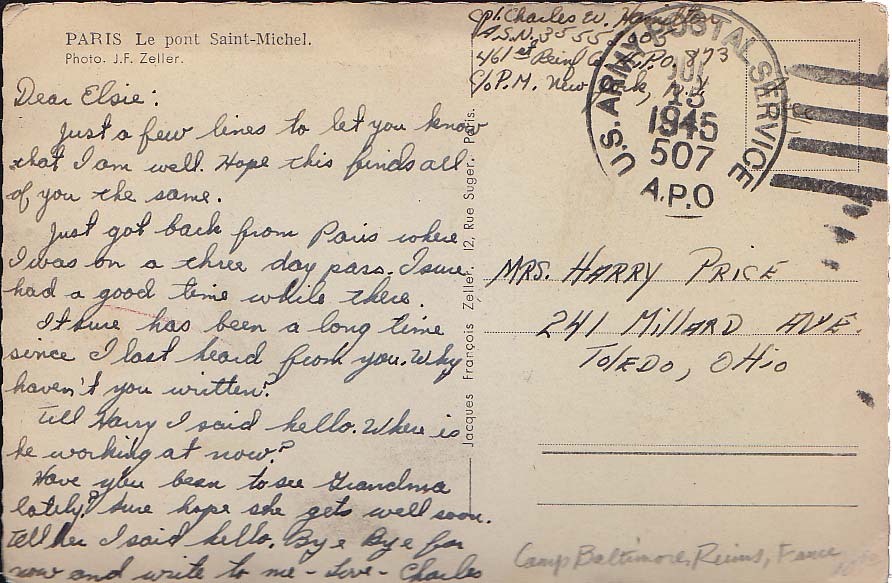 PARIS Le pont Saint-Michel.
Photo. J.F. Zeller.
Dear Elsie:
Just a few lines to let you know
that I am well. Hope this finds all
of you the same.
Just got back from Paris where
I was on a three day pass. I sure
had a good time while there.
It sure has been a long time
since I last heard from you. Why
haven't you written?
Tell Harry I said hello. Where is
he working at now?
Have you been to see Grandma
lately? Sure hope she gets well soon.
Tell her I said hello. Bye Bye for
now and write to me - Love - Charles
Jacques François Zeller. 12, Rue Suger. Paris.
Charles W. Hamilton
A.S.N. 3555
461st Reinf A.P.O. 873
c/o P.M. New York, N.Y.
U.S. ARMY POSTAL SERVICE
JUL
13
1945
507
A.P.O
MRS. HARRY PRICE
241 MILLARD AVE.
TOLEDO, OHIO
Camp Baltimore, Reims, France